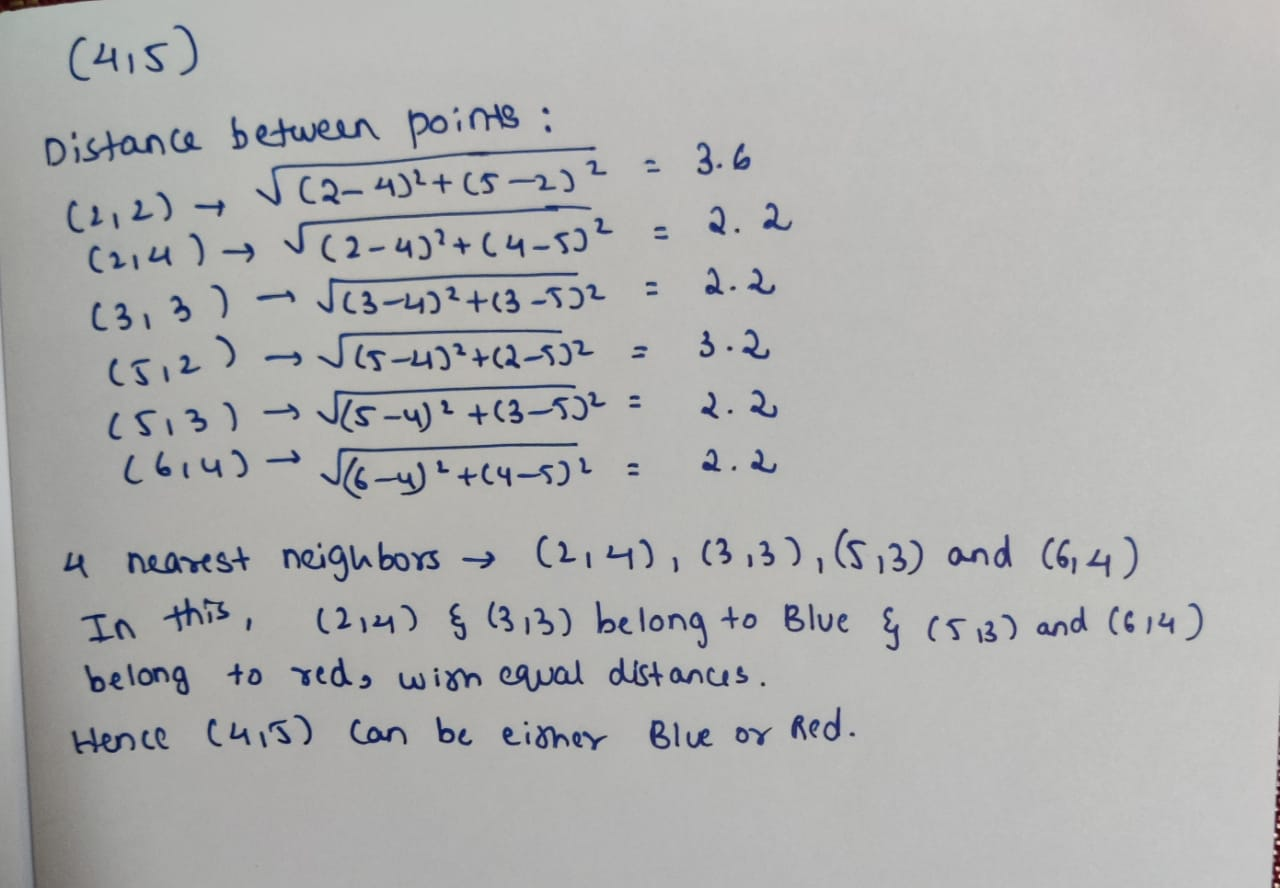 (4,5)
Distance between points :
(2,2) → √(2-4)²+(5-2)² = 3.6
(2,4) → √(2-4)²+(4-5)² = 2.2
(3,3) → √(3-4)²+(3-5)² = 2.2
(5,2) → √(5-4)²+(2-5)² = 3.2
(5,3) → √(5-4)²+(3-5)² = 2.2
(6,4) → √(6-4)²+(4-5)² = 2.2
4 nearest neighbors → (2,4), (3,3), (5,3) and (6,4)
In this, (2,4) & (3,3) belong to Blue & (5,3) and (6,4)
belong to red, with equal distances.
Hence (4,5) can be either Blue or Red.